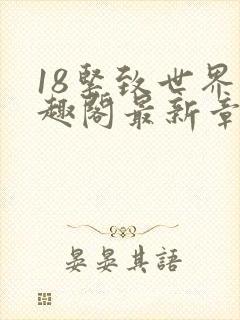 18竪致世界
趣閣最新章
晏晏其語